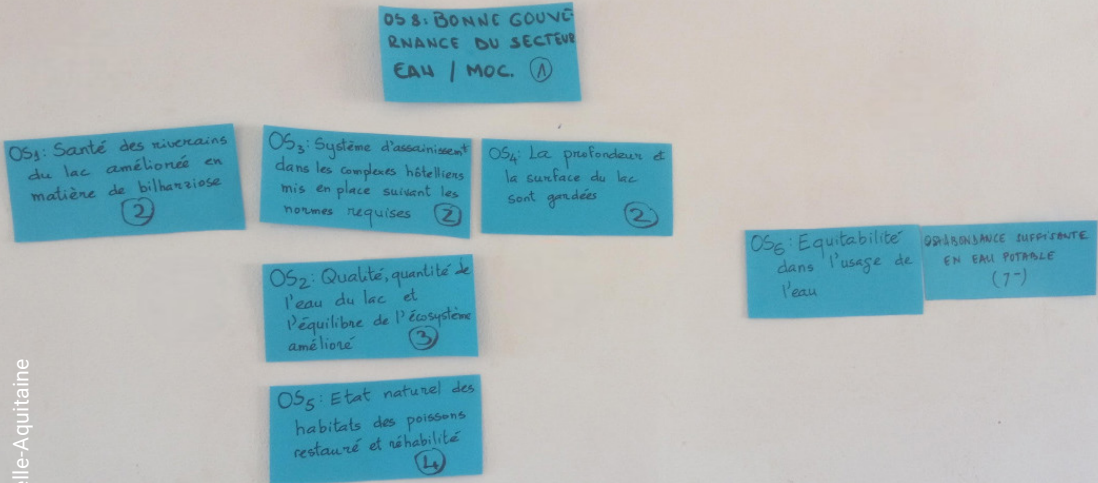 OS 8: BONNE GOUVE-
RNANCE DU SECTEUR
EAU / MOC. 1
OS1: Santé des riverains
du lac améliorée en
matière de bilharziose
2
OS3: Système d'assainissemt
dans les complexes hôtelliers
mis en place suivant les
normes requises 2
OS4: La profondeur et
la surface du lac
sont gardées
2
OS2: Qualité, quantité de
l'eau du lac et
l'équilibre de l'écosystème
amélioré 3
OS5: Etat naturel des
habitats des poissons
restauré et réhabilité
4
OS6: Equitabilité
dans l'usage de
l'eau
ABONDANCE SUFFISANTE
EN EAU POTABLE
(7-)
elle-Aquitaine